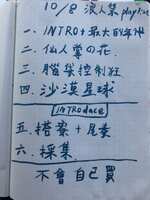 10/8 浪人祭 playlist
一、INTRO+最大的年神
二、仙人掌の花
三、腦袋控制狂
四、沙漠星球
INTRODUCE
五、搭案+尾奏
六、採集
不會自己買